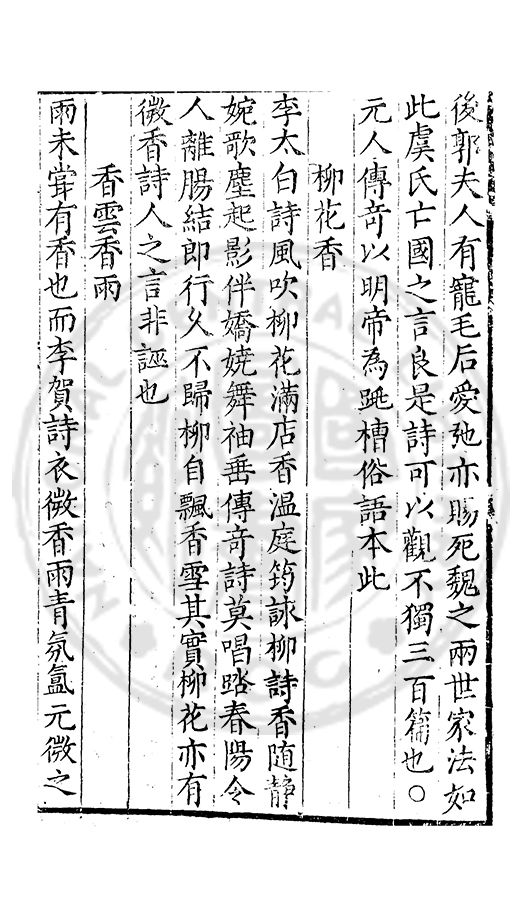 後郭夫人有寵毛后愛弛亦賜死魏之兩世家法如
此虞氏亡國之言良是詩可以觀不獨三百篇也○
元人傳奇以明帝為跳槽俗語本此
柳花香
李太白詩風吹柳花滿店香温庭筠詠柳詩香随静
婉歌塵起影伴嬌嬈舞袖垂傳奇詩莫唱踏春陽令
人離腸結即行久不歸柳自飄香雪其實柳花亦有
微香詩人之言非誣也
香雲香雨
雨未甞有香也而李賀詩衣微香雨青氛氲元微之